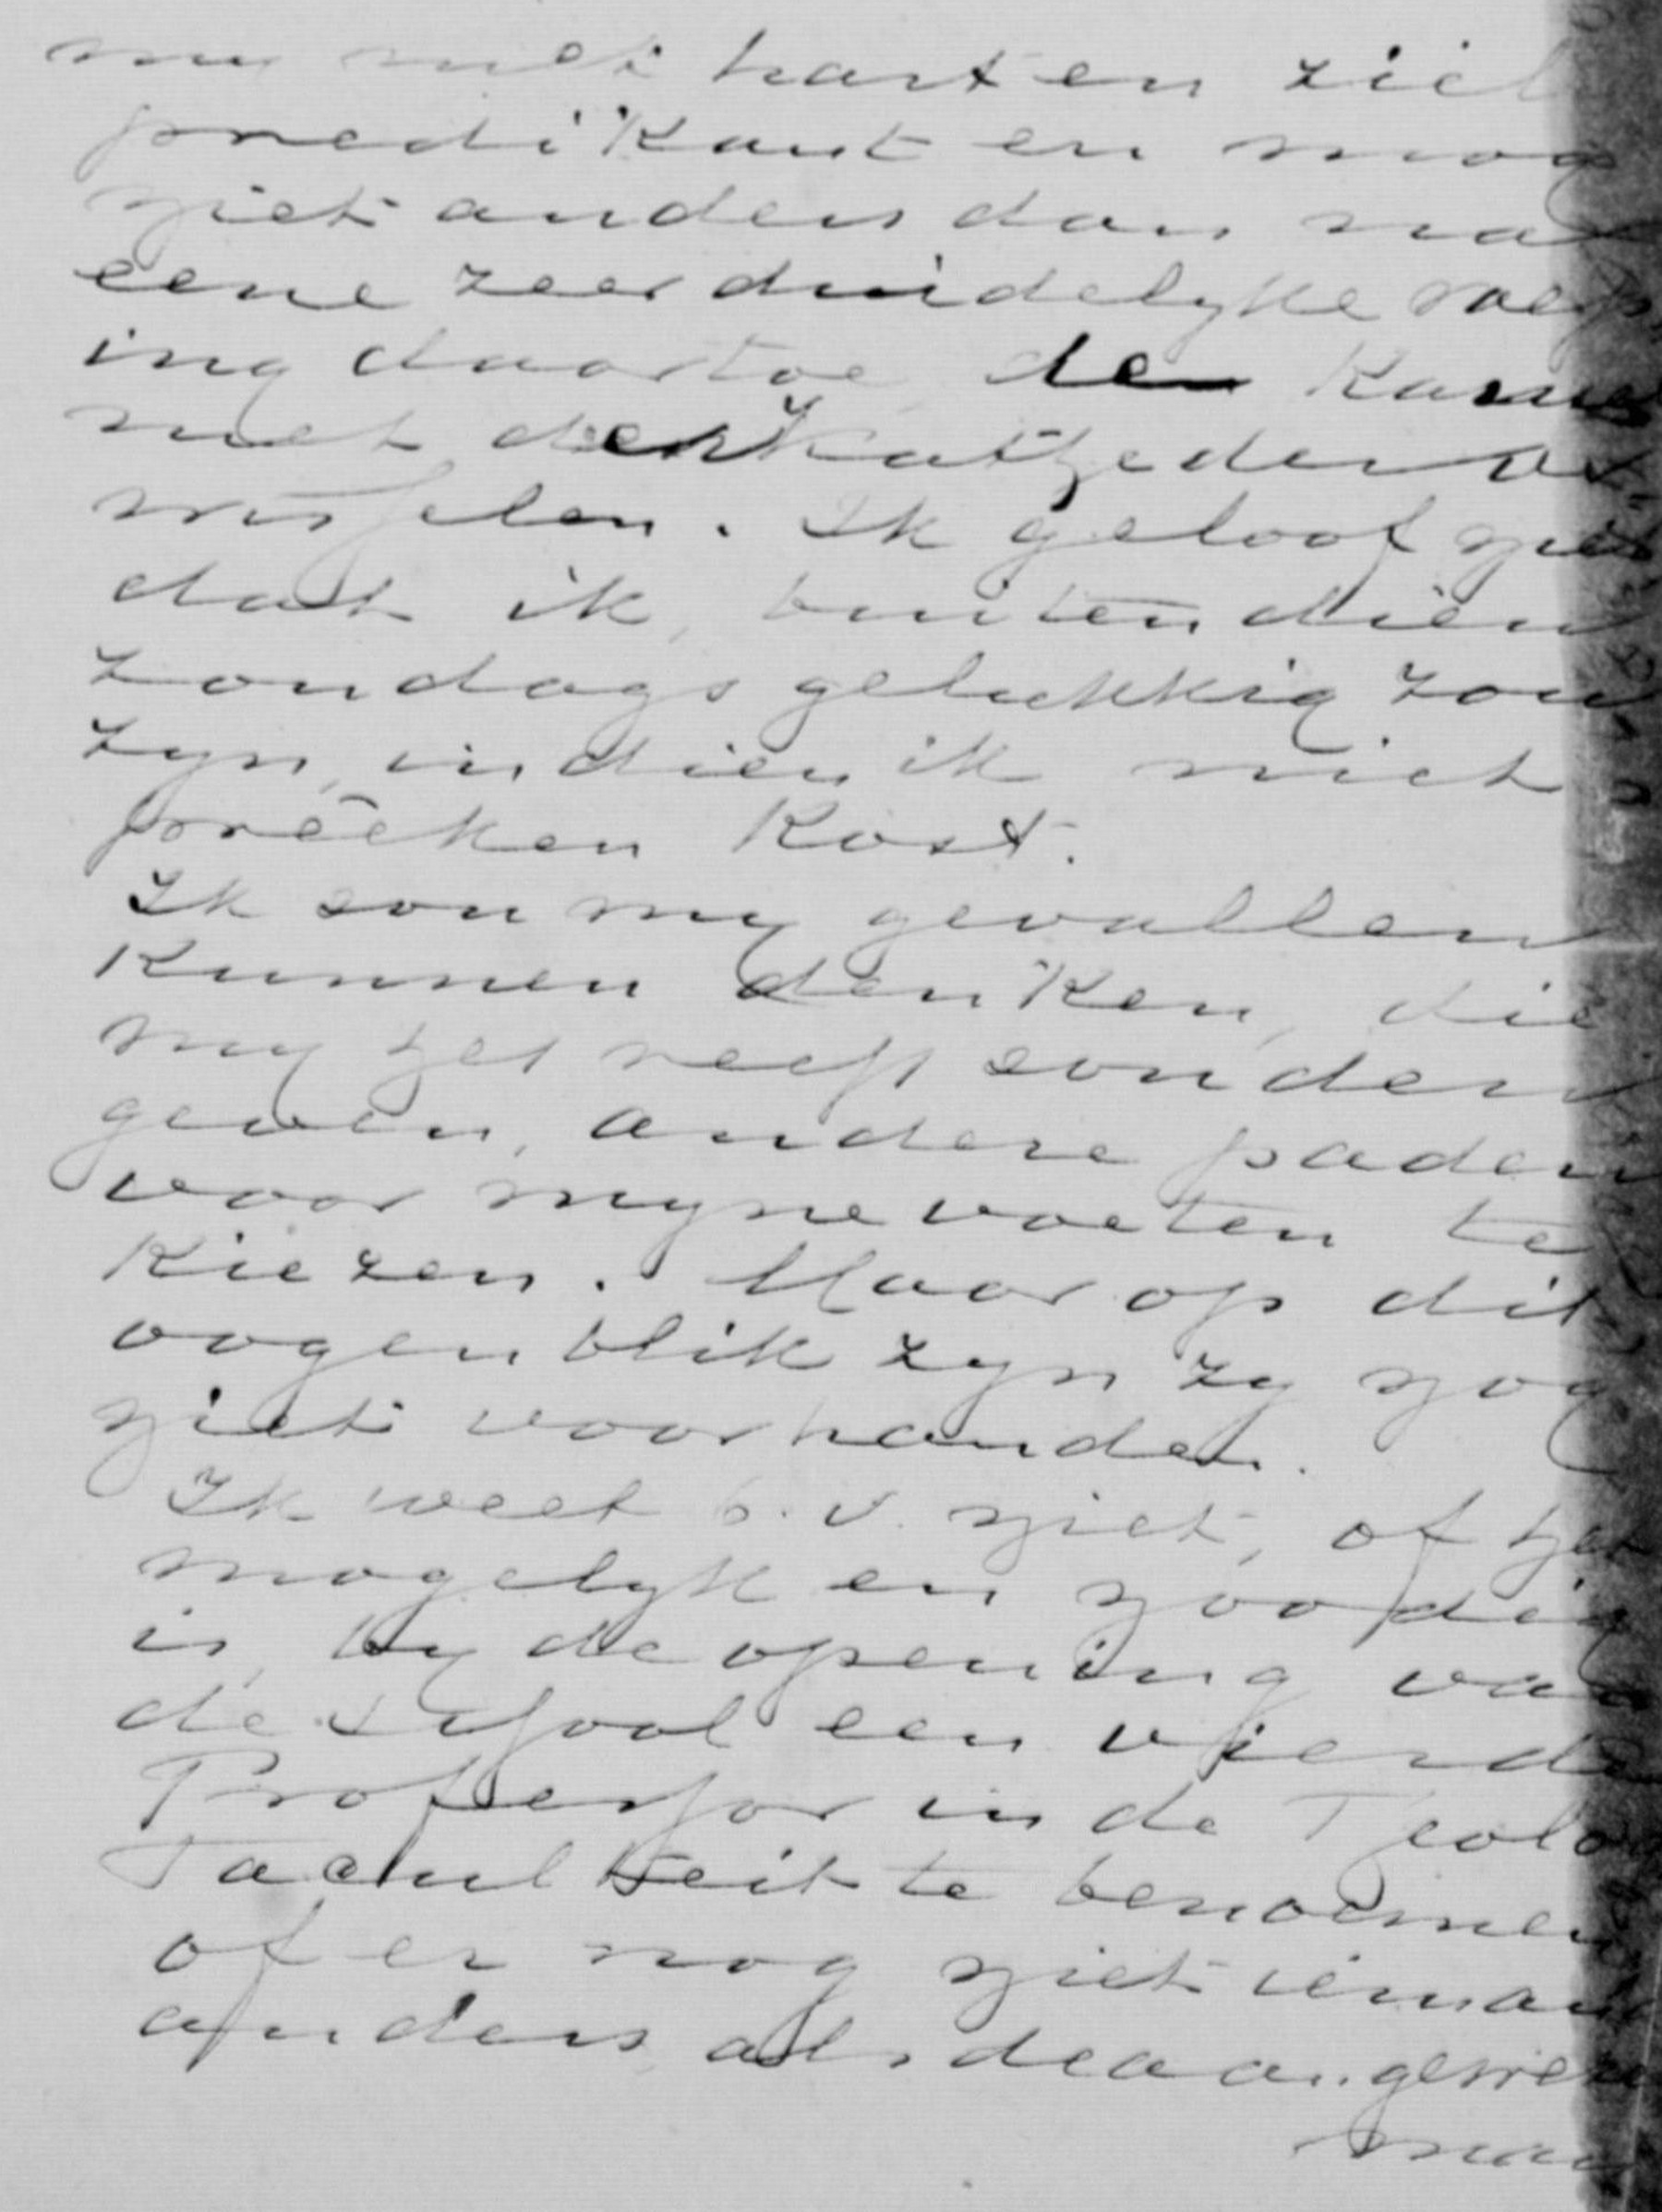 my met hart en ziel
predikant en mag
niet anders dan na
eene zeer duidelyke roep-
ing daartoe den Kansel
met den katheder ver-
wisselen. Ik geloof niet
dat ik, buitendien
Zondags gelukkig zou
zyn, indien ik niet
preeken kost.
Ik sou my gevallen
kunnen denken, die
my het recht souden
geven, andere paden
voor myne voeten te
kiezen. Maar op dit
oogenblik zyn zy nog
niet voorhanden.
Ik weet b.v. niet, of het
mogelyk en noodig
is, by de opening van
de school een vierde
Professor in de Theolo
Faculteit te benoemen
of er nog niet iemand
anders als de aangewezen
man